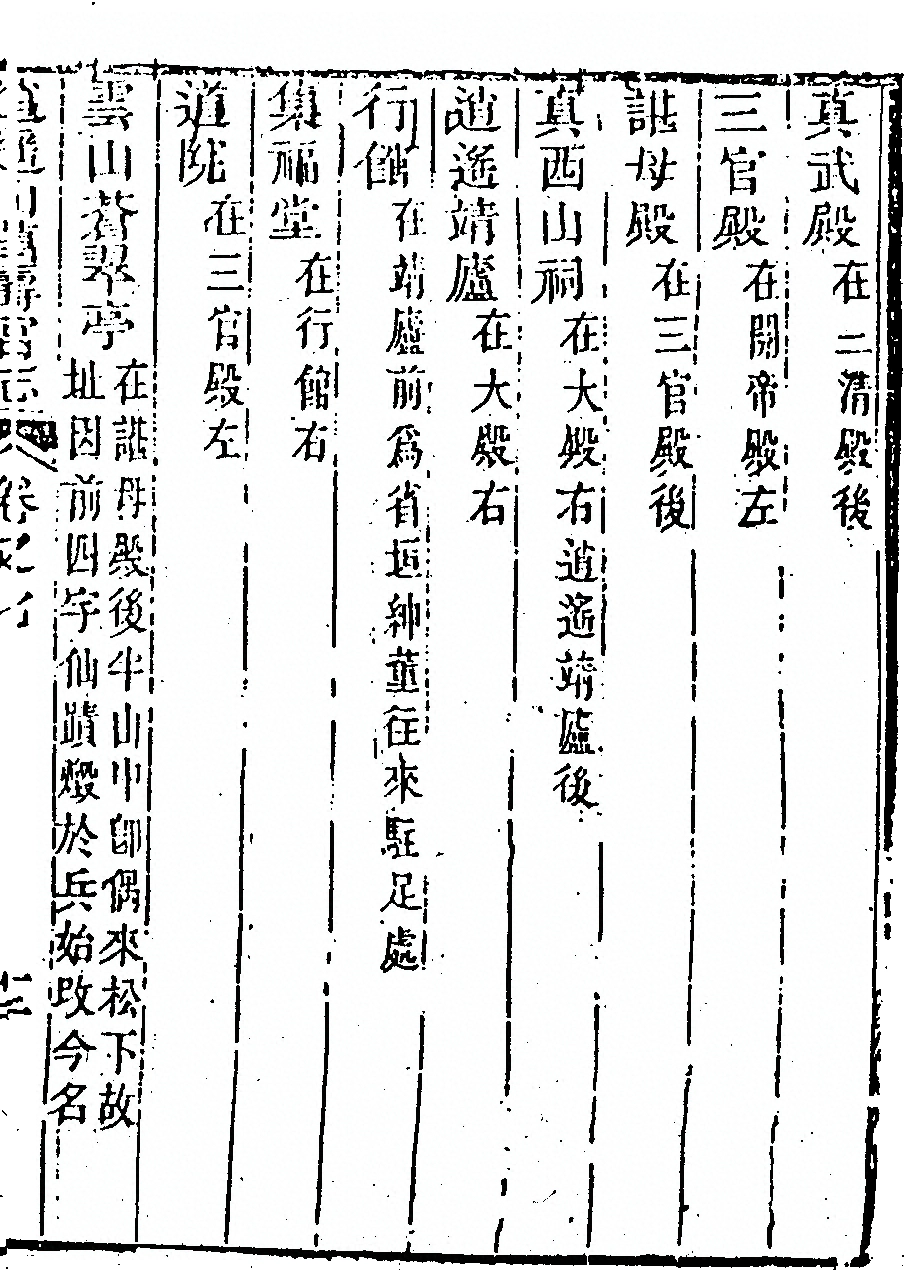 真武殿在三清殿後
三官殿在關帝殿左
諶母殿在三官殿後
真西山祠在大殿右逍遙靖廬後
逍遙靖廬在大殿右
行館在靖廬前爲省垣紳董往來駐足處
集福堂在行館右
道院在三官殿左
雲山蒼翠亭在諶母殿後半山中卽偶來松下故
址因前四字仙蹟燬於兵始改今名
逍遙山萬壽宮志 卷之七